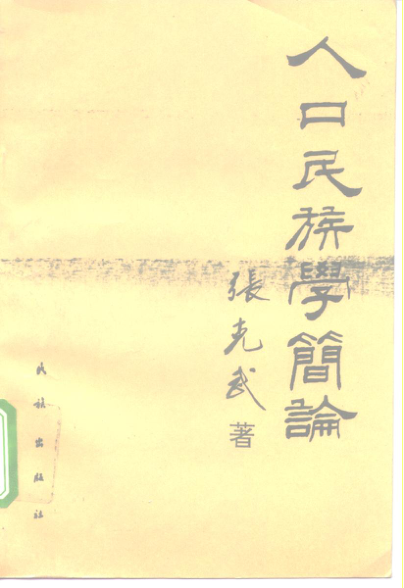 人口民族學簡論
張克武
著
民族出版社